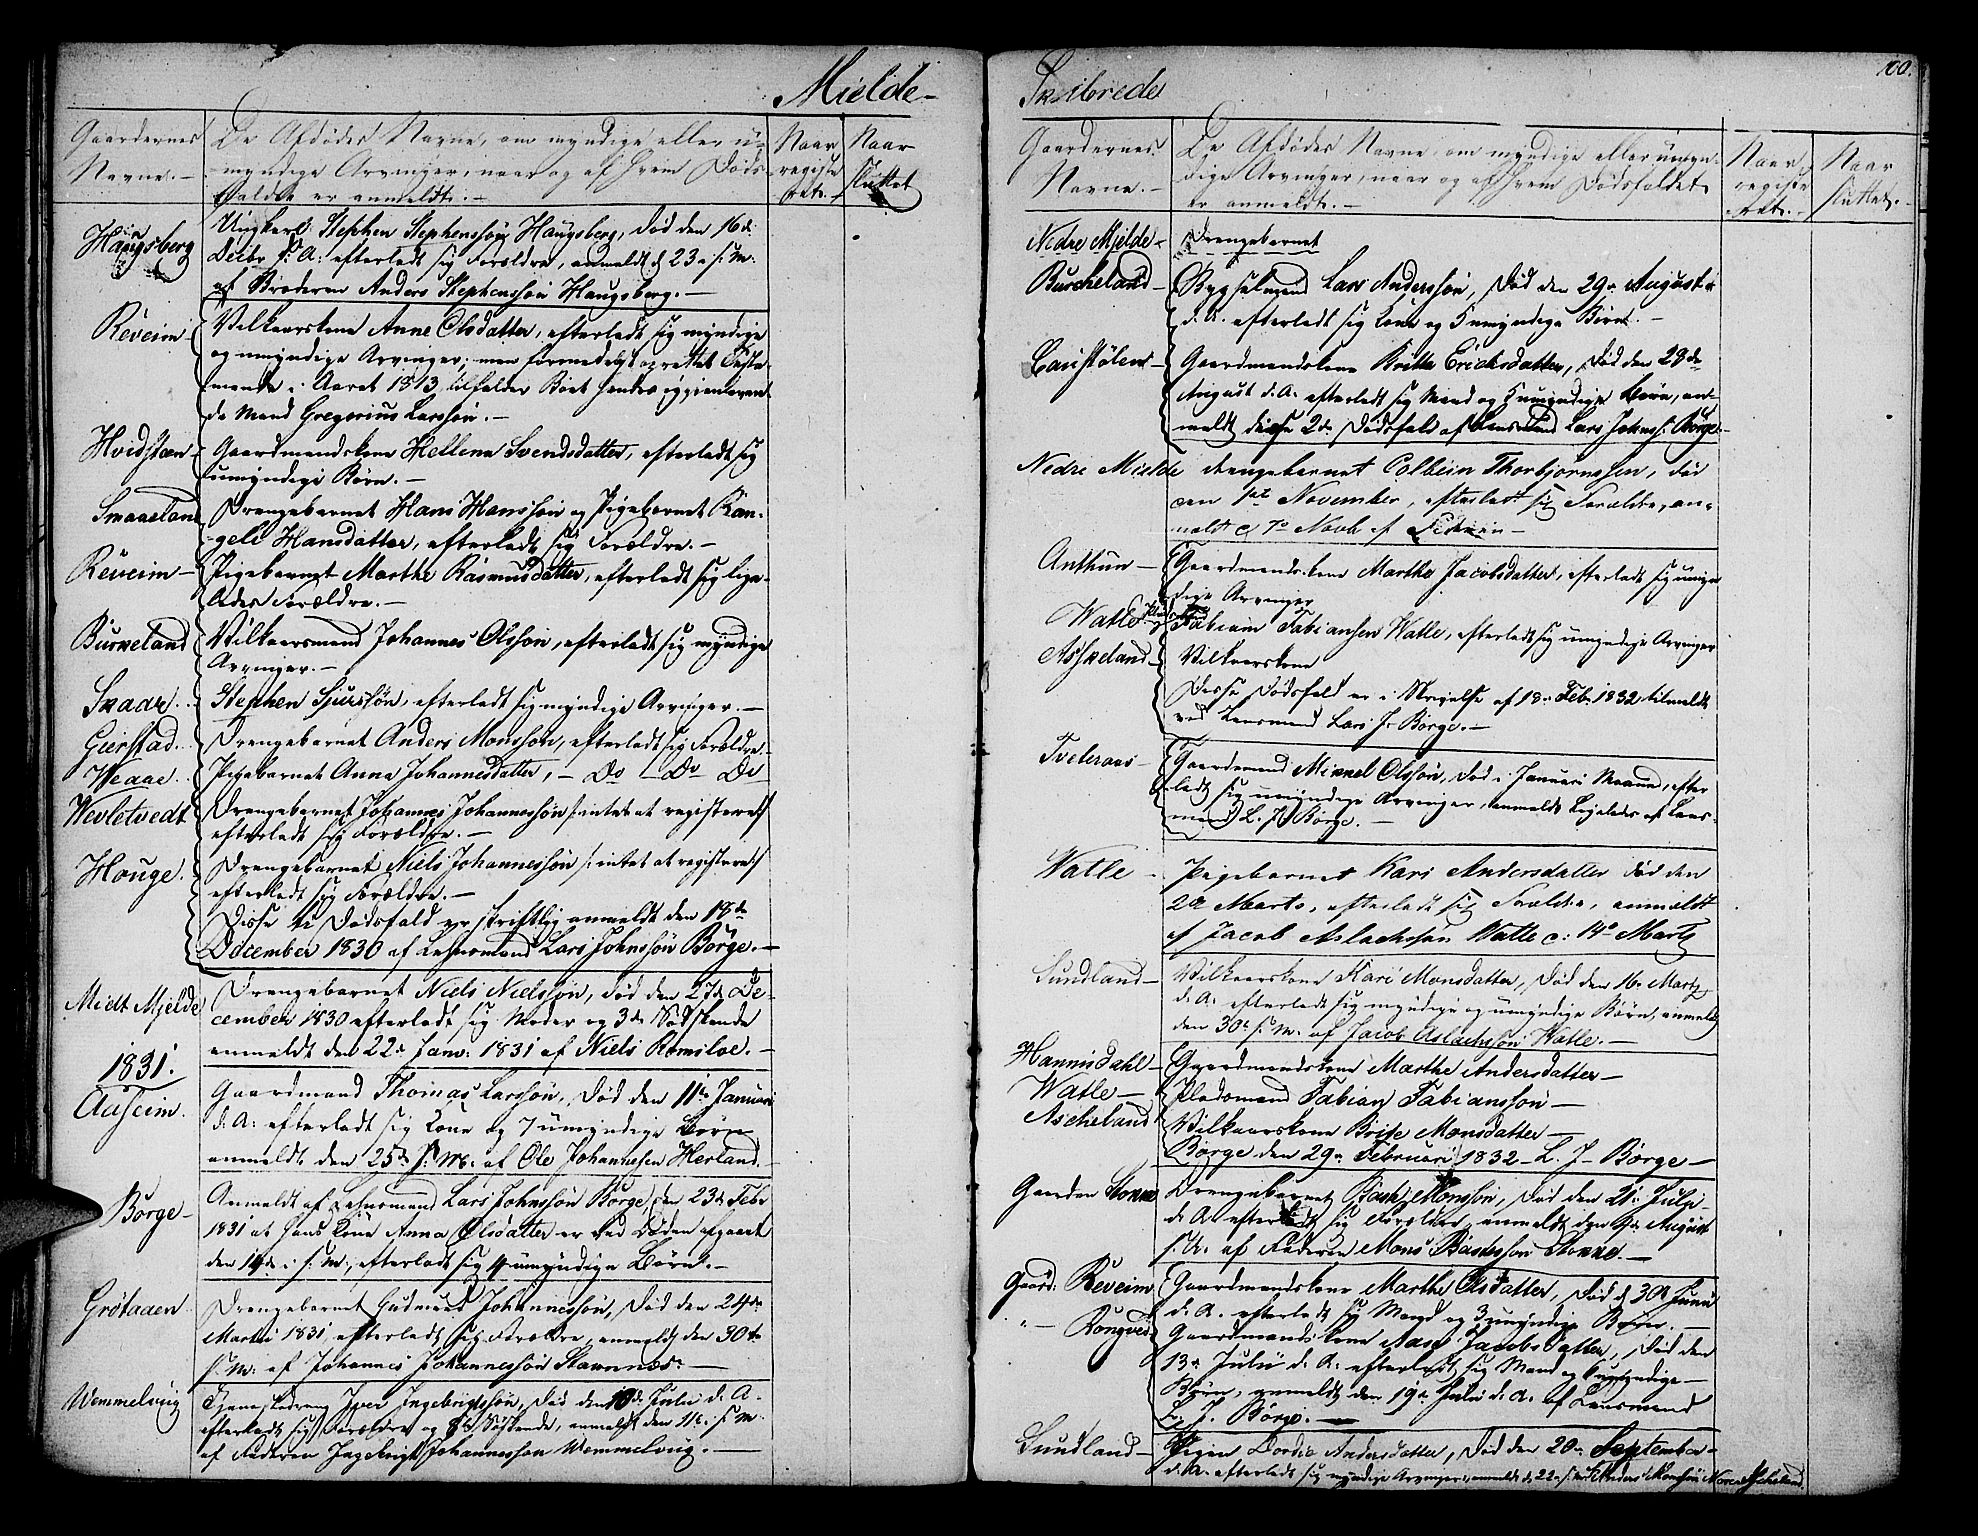 Mielde-
Gaardernes
Navne.-
De Afdødes Navne, om myndige eller u=
myndige Arvinger, naar og af hvem Døds-
faldet er anmeldt.-
Naar
registe
ret.-
Naar
sluttet
Haugsberg
Ungkarl Stephen Stephenssøn Haugsberg, død den 16de
Decbr f: A: efterladt sig Forældre, anmeldt d 23de s. M.
af Broderen Anders Stephenssøn Haugsberg.-
Reveim
Vilkaarskone Anne Olsdatter, efterladt sig myndige
og umyndige Arvinger, men formedelst oprettet Testa-
mente i Aaret 1813, tilfalder Boet hendes igjenleven-
de Mand Gregorius Larsson.-
Hvidsteen-
Gaardmandskone Hellena Svendsdatter, efterladt sig
umyndige Børn.-
Smaaeland
Drengebarnet Hans Hanssøn og Pigebarnet Ran-
geli Hansdatter, efterladt sig Forældre.-
Reveim-
Pigebarnet Marthe Rasmusdatter, efterladt sig lige-
ledes Forældre.-
Burkeland
Vilkaarsmand Johannes Olsson, efterladt sig myndige
Arvinger.-
Skaar.
Stephen Sjurssøn, efterladt sig myndige Arvinger.-
Gierstad.
Drengebarnet Anders Monsson, efterladt sig Forældre-
Pigebarnet Anna Johannesdatter, - Do - Do Do
Wevletvedt
Drengebarnet Johannes Johannessøn /: intet at registere :/
efterladt sig Forældre.-
Houge.
Drengebarnet Niels Johannessøn /: intet at registere :/
efterladt sig Forældre.-
Disse Dødsfald er skriftlig anmeldt den 18de
December 1830 af Lehnsmand Lars Johnssøn Børge.-
Midt Mjelde
Drengebarnet Niels Nielssøn, død den 27de De-
cember 1830 efterladt sig Moder og 3de Sødskende
anmeldt den 22de Janv. 1831 af Niels Romsloe.-
1831.
Aaseim.
Gaardmand Thomas Larssøn, død den 11te Januari
d. A. efterladt sig Kone og 7 umyndige Børn
anmeldt den 25de s. M. af Ole Johannesen Herland.
Børge-
Anmeldt af Lehnsmand Lars Johnssøn Børge, den 23de Febr
1831 at hans Kone Anna Olsdatter er ved Døden afgaaet
den 14de i s. M., efterladt sig 4 umyndige Børn.-
Grøtaaen
Drengebarnet Gudmund Johannessøn, død den 24de
Martii 1831, efterladt sig Forældre, anmeldt den 30te
s. M. af Johannes Johannessøn Stavnnæs.-
Wemmelvüg
Tjenestedreng Iver Ingebrigtssøn, død den 10de Julii d. A.
efterladt sig Forældre og Sødskende, anmeldt den 11te s. M.
af Faderen Ingebrigt Johannessøn Wemmelvüg.-
Skibrede
100.
Gaardernes
Navne.-
De Afdødes Navne, om myndige eller umyn-
dige Arvinger, naar og af hvem Dødsfaldet
er anmeldt.-
Naar
registe
ret.-
Naar
sluttet.-
Nedre Mjelde-
Drengebarnet
Burcheland-
Bygselmand Lars Anderssøn, død den 29de August
d. A. efterladt sig Kone og 5 umyndige Børn.-
Gaardmandskone Britta Erichsdatter, død den 28de
August d. A. efterladt sig Mand og 5 umyndige Børn, an-
meldt disse 2de Dødsfald af Lensmand Lars Johns. Børge.
Nedre Mielde
Drengebarnet Colbein Thorbjørnssen, død
den 1ste November, efterladt sig Forældre, an-
meldt d 7de Novb af
Anthun-
Gaardmandskone Marthe Jacobsdatter, efterladt sig umyn
dige Arvinger
Watle
Fabian Fabiansen Watle, efterladt sig umyndige Arvinger
Asskeland-
Vilkaarskone
Disse Dødsfald er i Skrivelse af 18de Feb. 1832 tilmeldt
ved Lensmand Lars J. Børge.-
Tveteraas-
Gaardmand Mikkel Olssøn, død i Januari Maaned, efter
ladt sig umyndige Arvinger, anmeldt ligeledes af Lens-
mand L. J. Børge.-
Watle-
Pigebarnet Kari Andersdatter død den
2de Marts, efterladt sig Forældre, anmeldt
af Jacob Aslachssøn Watle d: 14de Martz
Sundland-
Vilkaarskone Kari Monsdatter, død den 16de Martz
d. A. efterladt sig myndige og umyndige Børn, anmeldt
den 30te s. M. af Jacob Aslachssøn Watle.-
Hannisdahl-
Gaardmandskone Marthe Andersdatter-
Watle-
Pladsmand Fabian Fabianssøn-
Ascheland
Vilkaarskone Brite Monsdatter-
Børge den 29de Februari 1832 - L. J. Børge-
Gaarden Stokke
Drengebarnet Baste Monssøn, død den 21de Julii
d. A. efterladt sig Forældre, anmeldt den August
s. A. af Faderen Mons Bastessøn Stokke.-
Gaard. Reveim
Gaardmandskone Marthe Olsdatter, død d 30te Junii
d. A. efterladt sig Mand og 3 umyndige Børn.-
" - Rongved
Gaardmandskone Aase Jacobsdatter, død den
13de Julii d. A. efterladt sig Mand og 6 umyndige
Børn, anmeldt den 19de Julii d. A. af Lensmand
L. J. Børge.-
Sundland-
Pigen Dordei Andersdatter, død den 20de September
d. A. efterladt sig myndige Arvinger, anmeldt d 22de s. M. af Anders Monssøn Nore Ascheland.